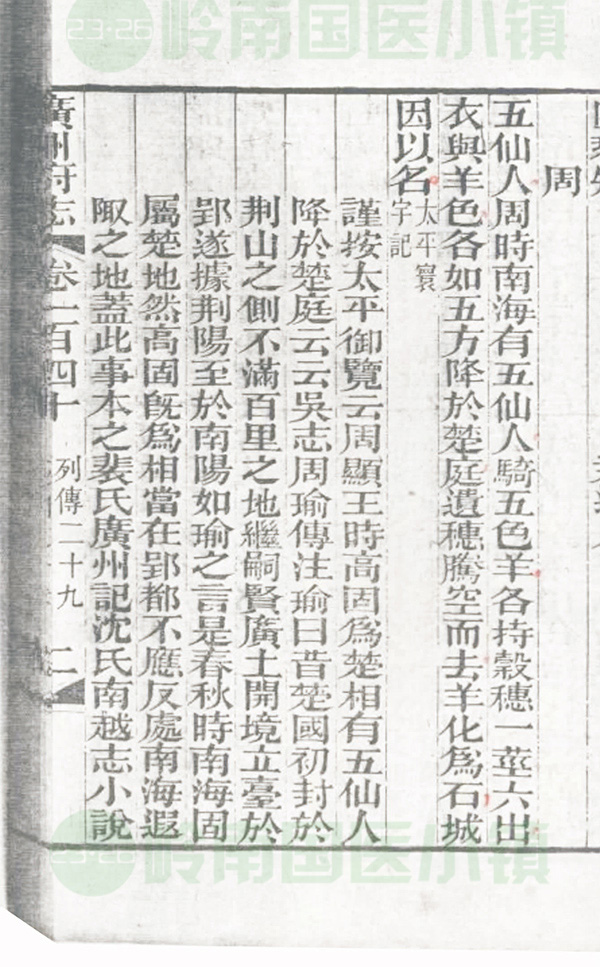 周
五仙人周時南海有五仙人騎五色羊各持穀穗一莖六出
衣與羊色各如五方降於楚庭遺穗騰空而去羊化爲石城
因以名太平寰字記
謹按太平御覽云周顯王時高固爲楚相有五仙人
降於楚庭云云吳志周瑜傳注瑜曰昔楚國初封於
荆山之側不滿百里之地繼嗣賢廣土開境立臺於
郢遂據荆陽至於南陽如瑜之言是春秋時南海固
屬楚地然高固旣爲相當在郢都不應反處南海遐
陬之地蓋此事本之裴氏廣州記沈氏南越志小說
廣州府志 卷一百四十 列傳二十九 二
23:26 岭南国医小镇
23:26 岭南国医小镇